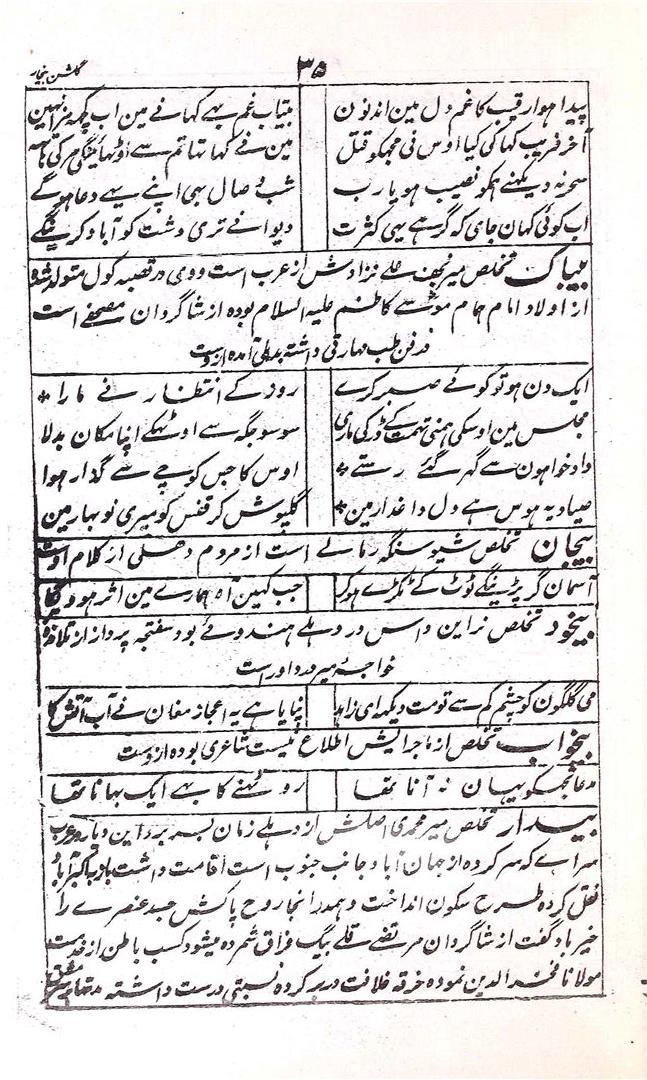 ۳۵
گلشن بیخار
پیدا ہوا رقیب کا غم دل مین اندنون بیتاب غم ہے کہانے مین اب کچھ مزا نہین
آخر فریب کہا کی کیا اوس نی مجہکو قتل مین نے کہا تہا تم سے اوٹھا
سحر نہ دیکہنے ہمکو نصیب ہو یا رب شب وصال بہی اپنے یہے دعا ہو گے
اب کوئی کہان جای کہ گر ہے یہی کثرت دیوانے تری دشت کو آباد کرینگے
بیباک تخلص میر نجف علے نژادش از عرب است ووی در قصبہ کول متولد شدہ
از اولاد امام ہمام موسٰے کاظم علیہ السلام بودہ از شاگردان مصحفے است
در فن طب مہارتی داشتہ بدہلی آمدہ ازوست
ایک دن ہو تو کوئے صبر کرے روز کے انتظار نے مارا *
مجلس مین اوسکی ہمنی تہمت کے ڈر کی ماری سو سو جگہ سے اوٹہکے اپنا مکان بدلا
داد خواہون سے گہر گئے رستے * اوس کا جس کوچے سے گذار ہوا
صیاد یہ ہوس ہے دل داغدار مین * گلپوش کر قفس کو میری نو بہار مین
بیجان تخلص شیو سنگہ نامے است از مردم دہلی از کلام اوست
آسمان گر پڑینگے ٹوٹ کے ٹکڑے ہو کر جب کہین آہ ہمارے مین اثر ہوویگا
بیخود تخلص نراین داس در دہلے ہندوئے بود سفتجہ پرداز از تلامذہ
خواجہ میر درد اور است
می گلگون کو چشم کم سے تو مت دیکہہ ای زاہد بنایا ہے یہ اعجاز مغان نے آب آتش کا
بیخواب تخلص از ماجرایش اطلاع نیست شاعری بودہ ازوست
مدعا تجہکو یہان نہ آنا تھا روٹہنے کا یہے ایک بہانا تھا
بیدار تخلص میر محمدی اصلش از دہلے زمان بسر برد این دیار و عرب
سراے کہ سہ کردہ از جہان آباد جانب جنوب است اقامت داشت باز باکبرآباد
نقل کردہ طرح سکون انداخت و ہمدرانجا روح پاکش جسد عنصرے را
خیرباد گفت از شاگردان مرتضے قلے بیگ فراق شمردہ میشود کسب باطن از خدمت
مولانا فخر الدین نمودہ خرقہ خلافت در بر کردہ نسبتی درست داشتہ